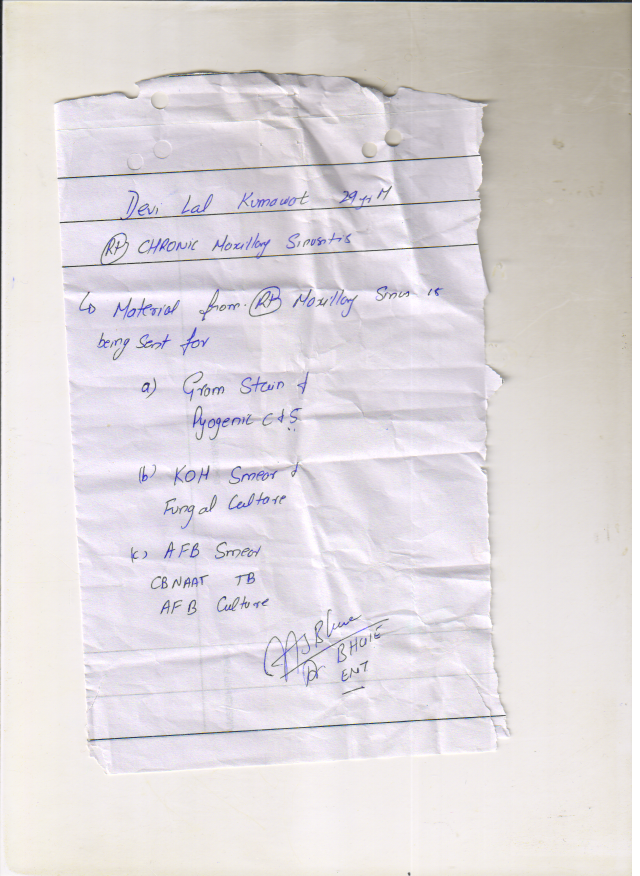 Devi Lal Kumawat 29 yr M
Rt CHRONIC Maxillary Sinusitis
↳ Material from Rt Maxillary Sinus is
being sent for
a) Gram Stain &
Pyogenic C & S
(b) KOH Smear &
Fungal Culture
(c) AFB Smear
CBNAAT TB
AFB Culture
Dr BHUIE
ENT